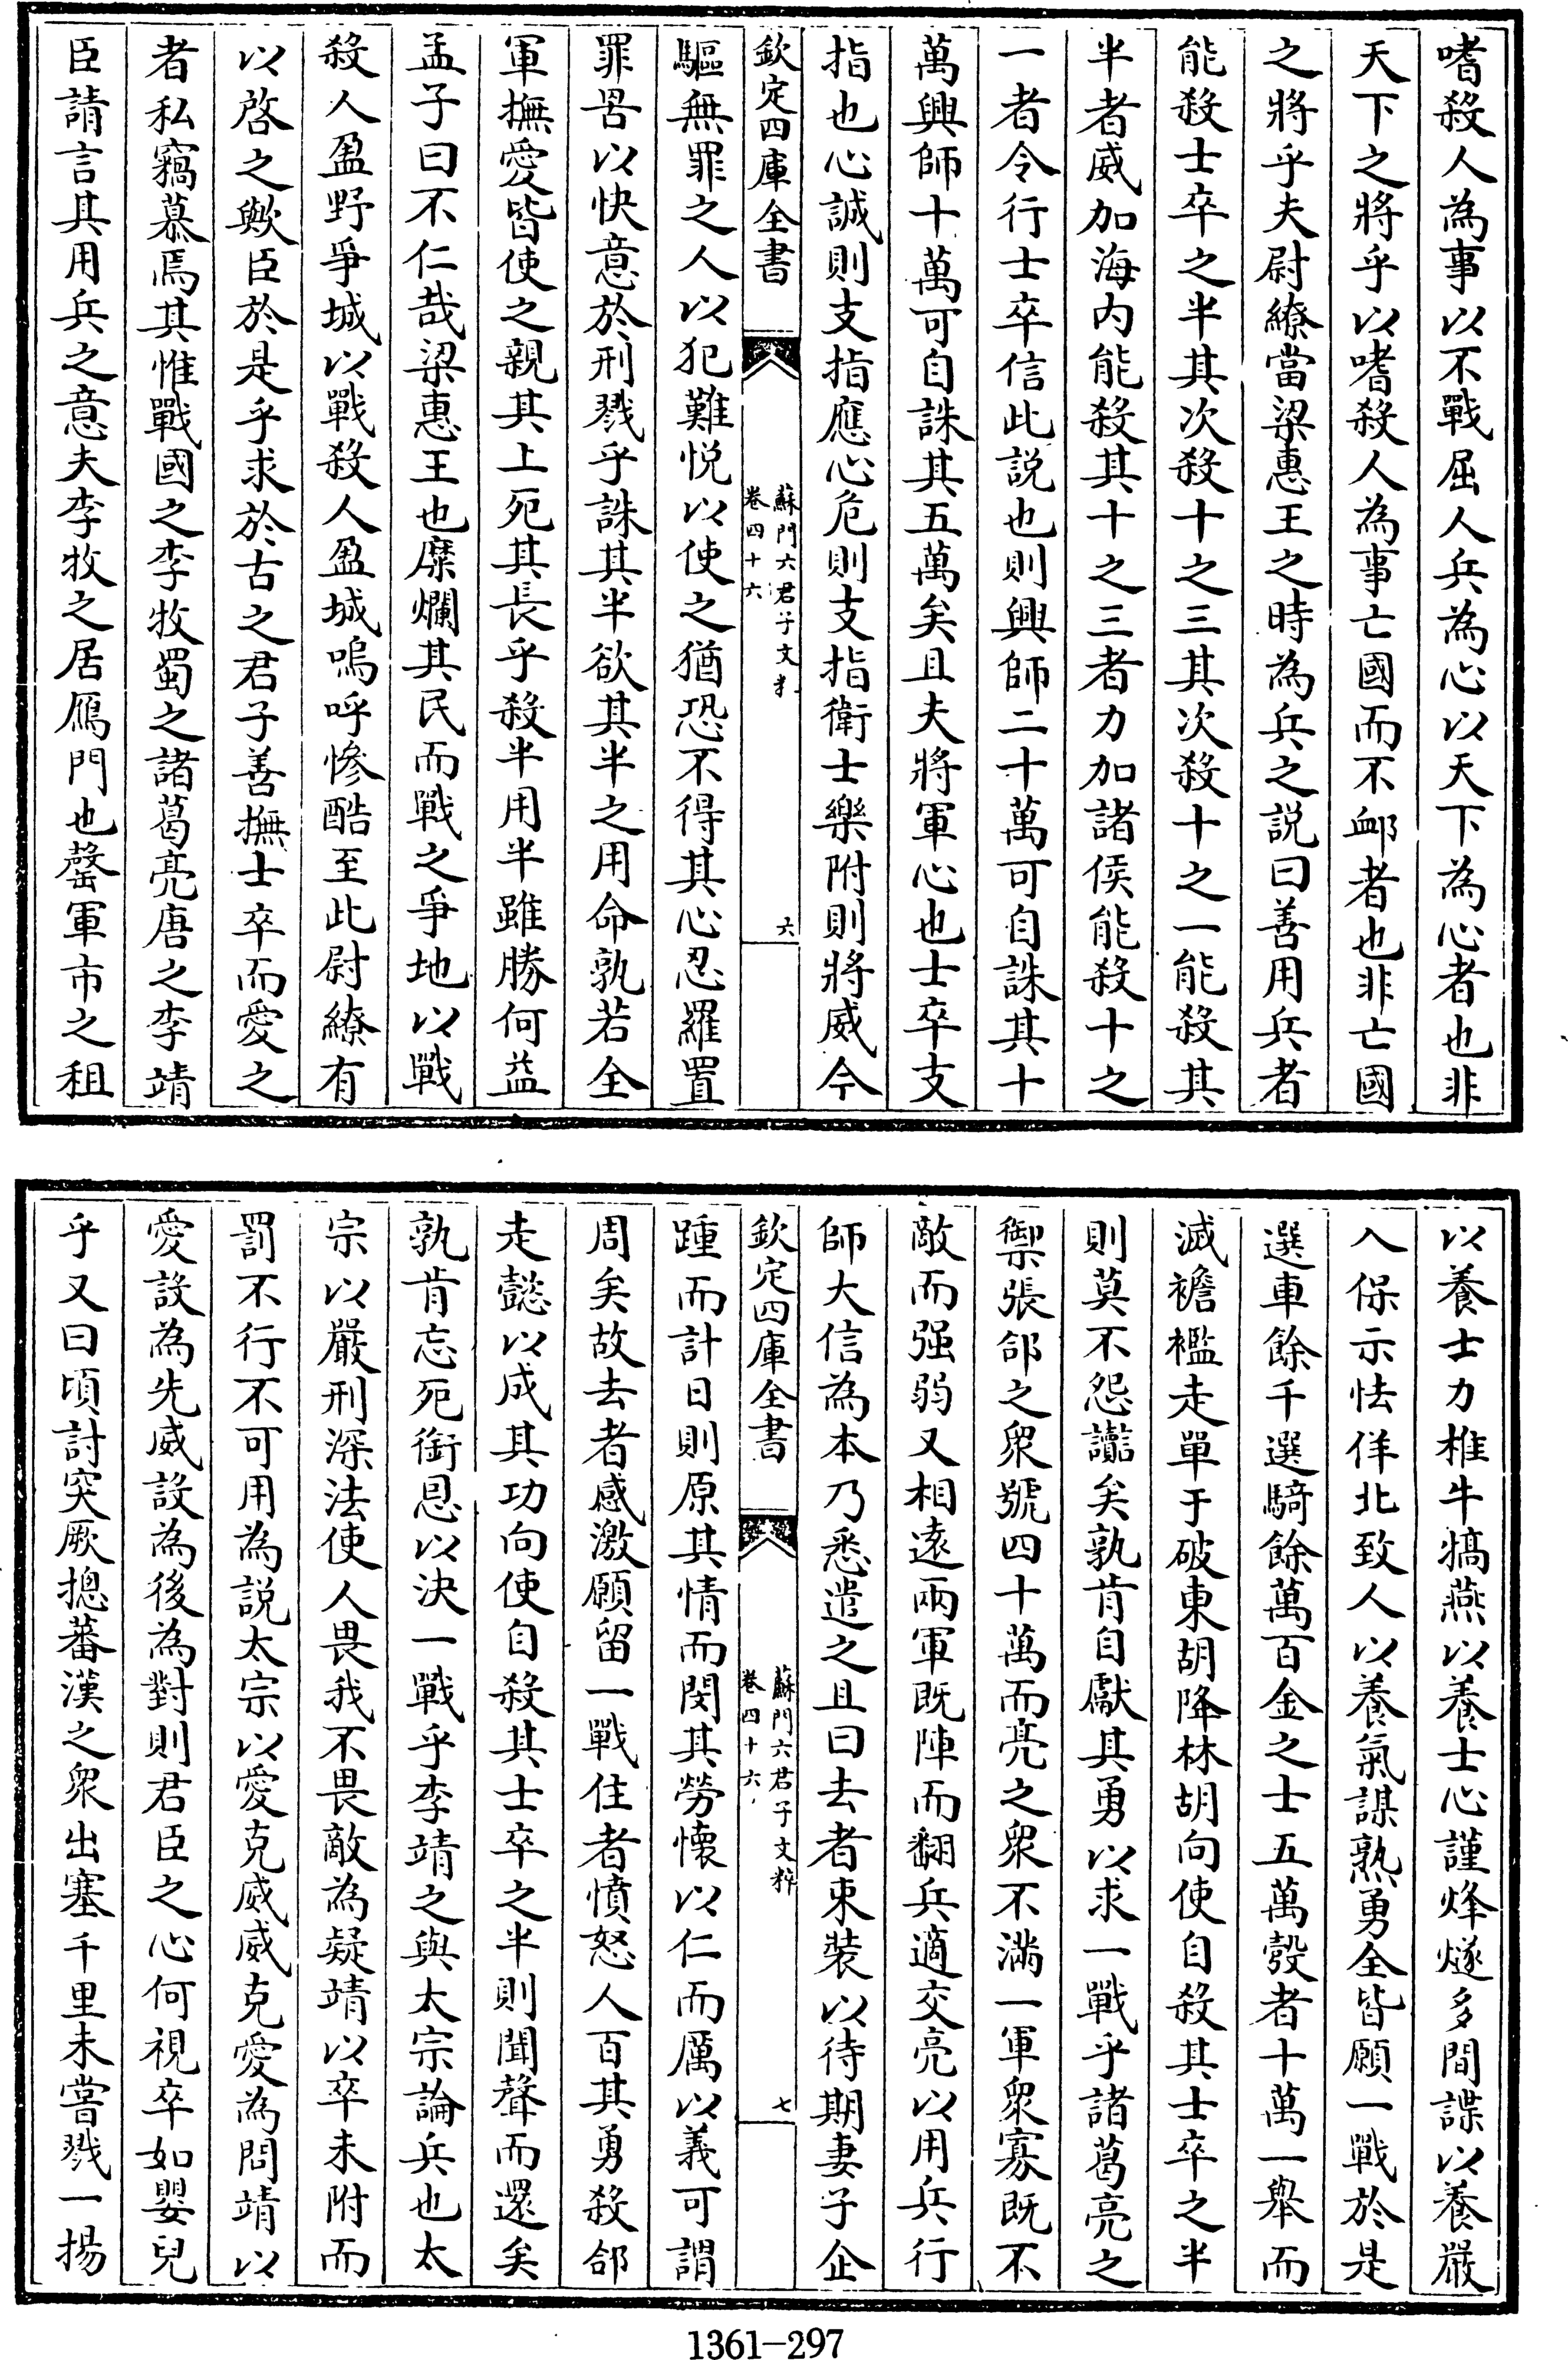 嗜殺人為事以不戰屈人兵為心以天下為心者也非
天下之將乎以嗜殺人為事亡國而不䘏者也非亡國
之將乎夫尉繚當梁惠王之時為兵之説曰善用兵者
能殺士卒之半其次殺十之三其次殺十之一能殺其
半者威加海内能殺其十之三者力加諸侯能殺十之
一者令行士卒信此説也則興師二十萬可自誅其十
萬興師十萬可自誅其五萬矣且夫將軍心也士卒支
指也心誠則支指應心危則支指衛士樂附則將威今
欽定四庫全書
蘇門六君子文粹
卷四十六
六
驅無罪之人以犯難悦以使之猶恐不得其心忍羅置
罪罟以快意於刑戮乎誅其半欲其半之用命孰若全
軍撫愛皆使之親其上死其長乎殺半用半雖勝何益
孟子曰不仁哉梁惠王也糜爛其民而戰之爭地以戰
殺人盈野爭城以戰殺人盈城嗚呼慘酷至此尉繚有
以啓之歟臣於是乎求於古之君子善撫士卒而愛之
者私竊慕焉其惟戰國之李牧蜀之諸葛亮唐之李靖
臣請言其用兵之意夫李牧之居鴈門也罄軍市之租
以養士力椎牛犒燕以養士心謹烽燧多間諜以養嚴
入保示怯佯北致人以養氣謀熟勇全皆願一戰於是
選車餘千選騎餘萬百金之士五萬彀者十萬一舉而
滅襜襤走單于破東胡降林胡向使自殺其士卒之半
則莫不怨讟矣孰肯自獻其勇以求一戰乎諸葛亮之
禦張郃之衆號四十萬而亮之衆不滿一軍衆寡既不
敵而强弱又相逺兩軍既陣而翻兵適交亮以用兵行
師大信為本乃悉遣之且曰去者束裝以待期妻子企
欽定四庫全書
蘇門六君子文粹
卷四十六
七
踵而計日則原其情而閔其勞懷以仁而厲以義可謂
周矣故去者感激願留一戰住者憤怒人百其勇殺郃
走懿以成其功向使自殺其士卒之半則聞聲而還矣
孰肯忘死銜恩以決一戰乎李靖之與太宗論兵也太
宗以嚴刑深法使人畏我不畏敵為疑靖以卒未附而
罰不行不可用為説太宗以愛克威威克愛為問靖以
愛設為先威設為後為對則君臣之心何視卒如嬰兒
乎又曰頃討突厥揔蕃漢之衆出塞千里未嘗戮一揚
1361-297